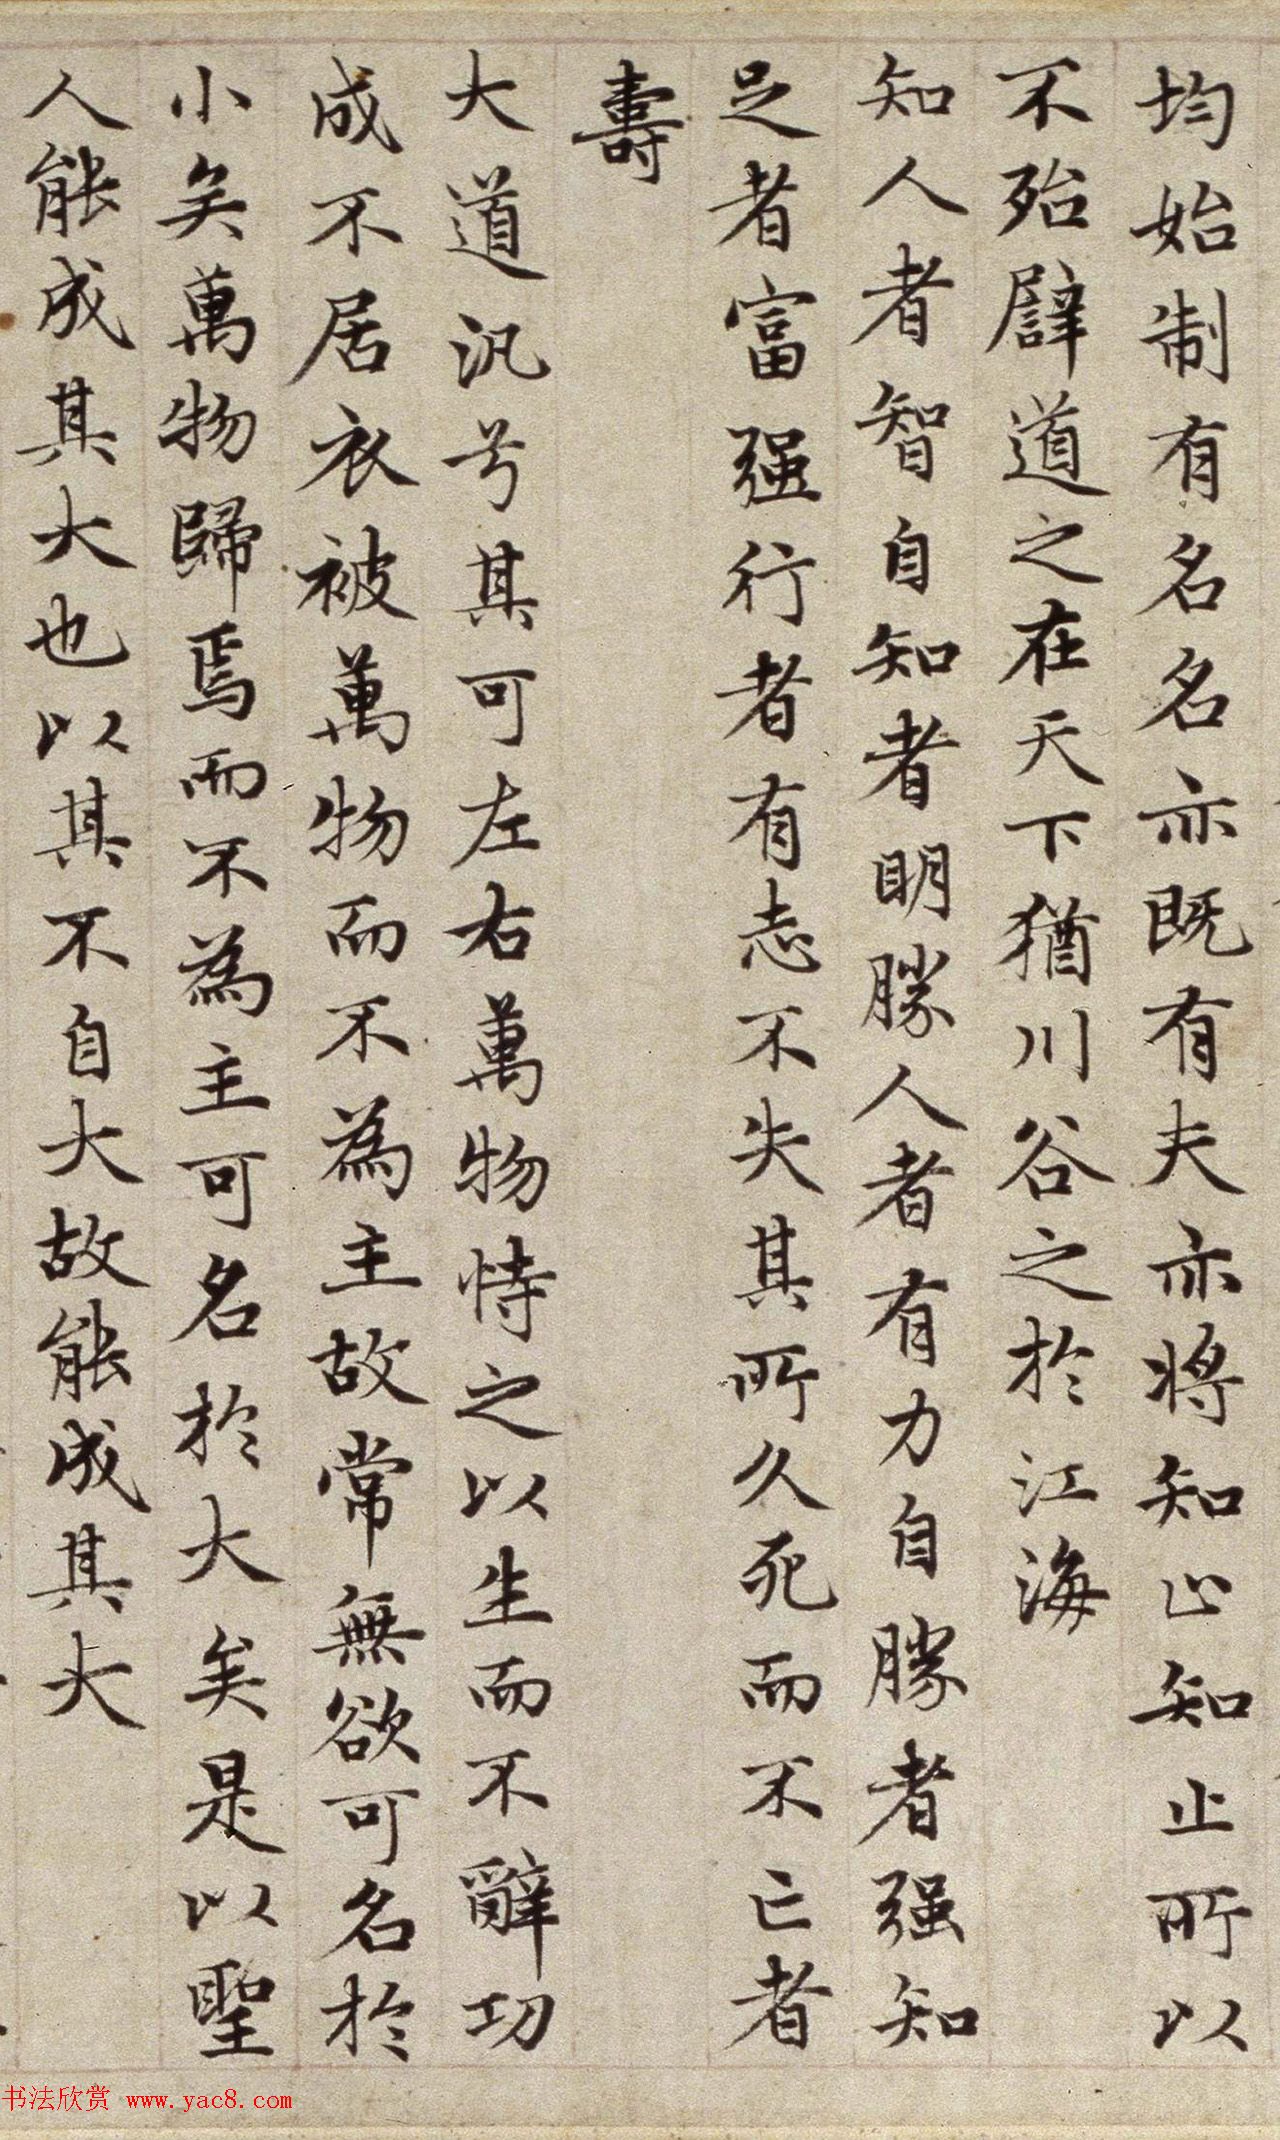 均始制有名名亦既有夫亦將知止知止所以
不殆譬道之在天下猶川谷之於江海
知人者智自知者明勝人者有力自勝者强知
足者富强行者有志不失其所久死而不亡者
壽
大道汎兮其可左右萬物恃之以生而不辭功
成不居衣被萬物而不為主故常無欲可名於
小矣萬物歸焉而不為主可名於大矣是以聖
人能成其大也以其不自大故能成其大
书法欣赏 www.yac8.com